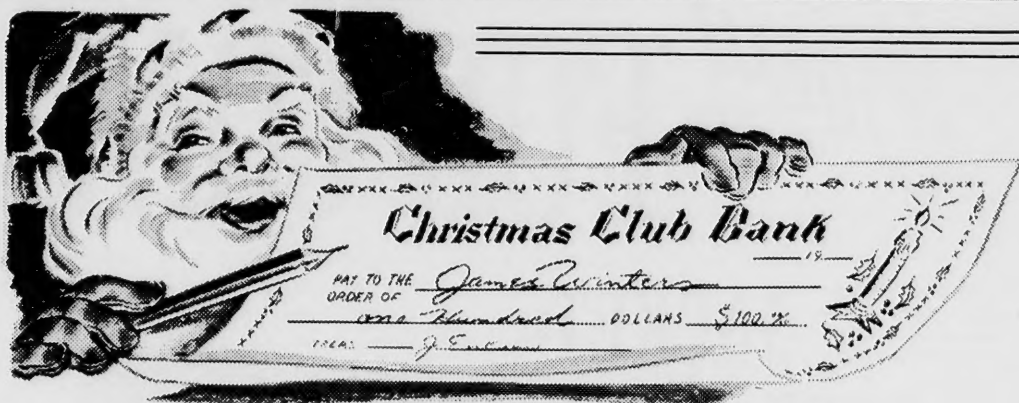 Christmas Club Bank
19
PAY TO THE ORDER OF James Winters
One Hundred DOLLARS $100.XX
TREAS J.